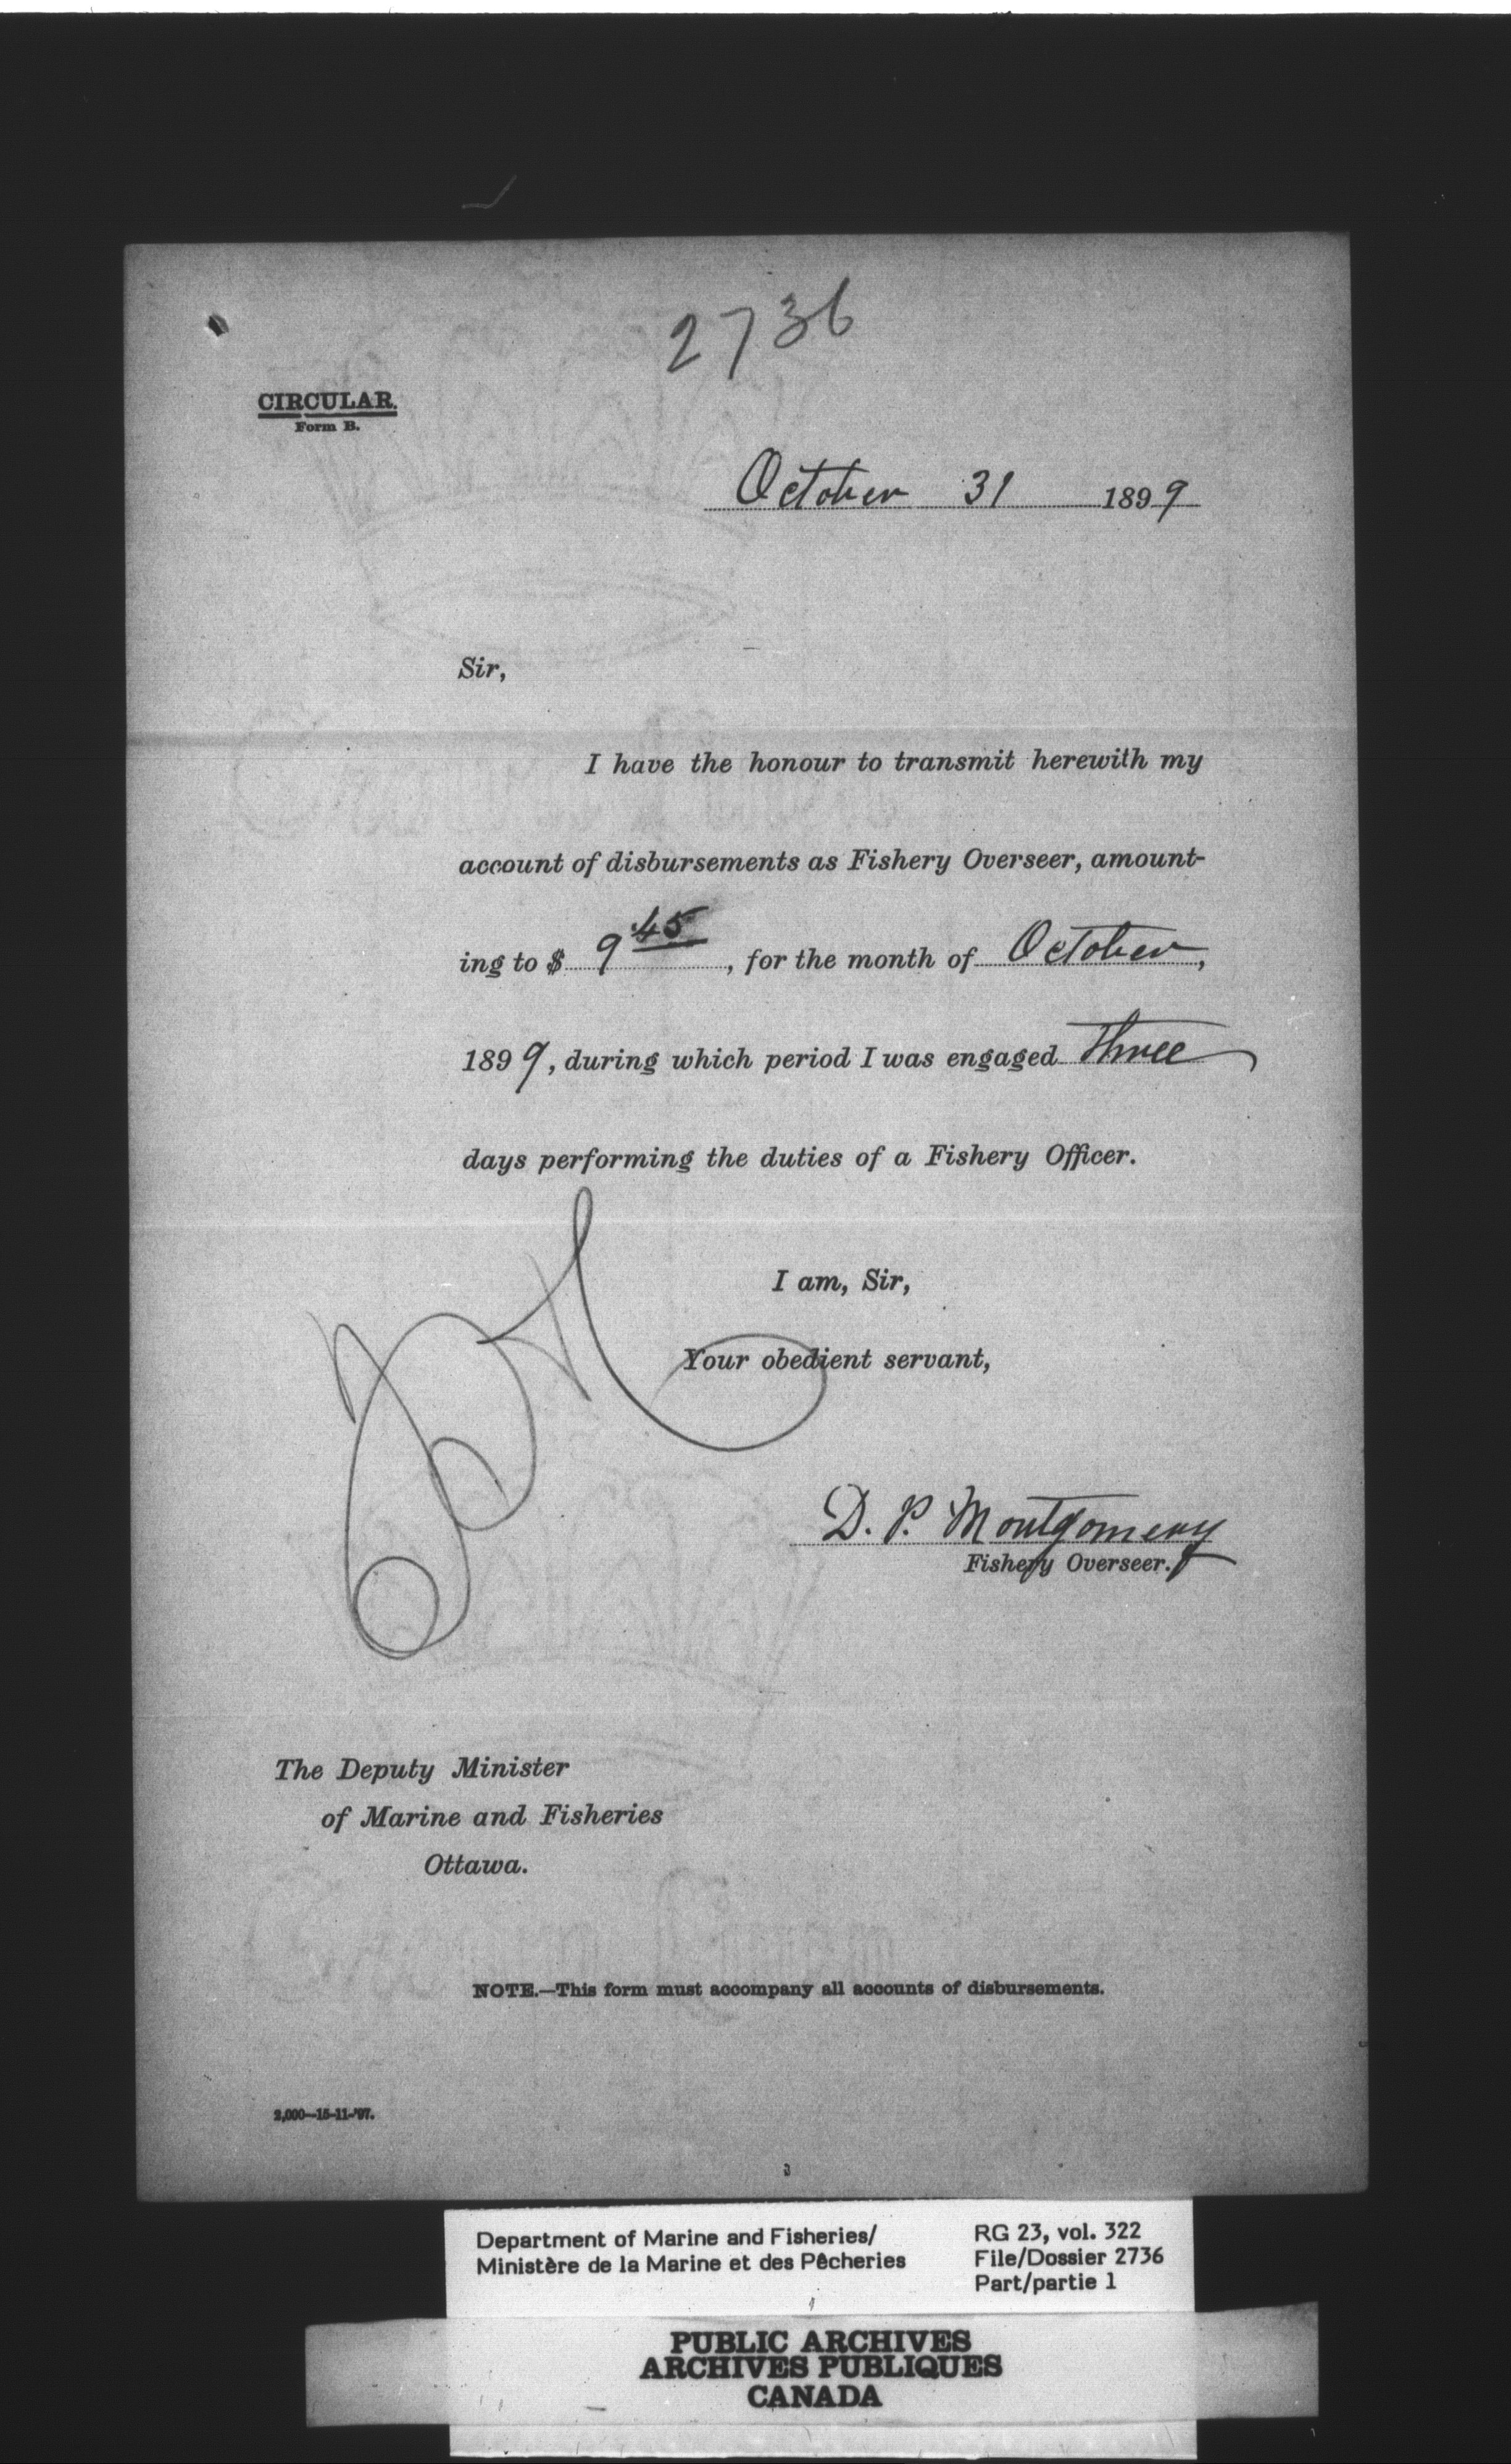 2736
CIRCULAR.
Form B.
October 31 1899
Sir,
I have the honour to transmit herewith my
account of disbursements as Fishery Overseer, amount-
ing to $ 9.45, for the month of October,
1899, during which period I was engaged three
days performing the duties of a Fishery Officer.
I am, Sir,
Your obedient servant,
D. P. Montgomery
Fishery Overseer.
The Deputy Minister
of Marine and Fisheries
Ottawa.
NOTE.—This form must accompany all accounts of disbursements.
2,000—15-11-'97.
Department of Marine and Fisheries/
Ministère de la Marine et des Pêcheries
RG 23, vol. 322
File/Dossier 2736
Part/partie 1
PUBLIC ARCHIVES
ARCHIVES PUBLIQUES
CANADA